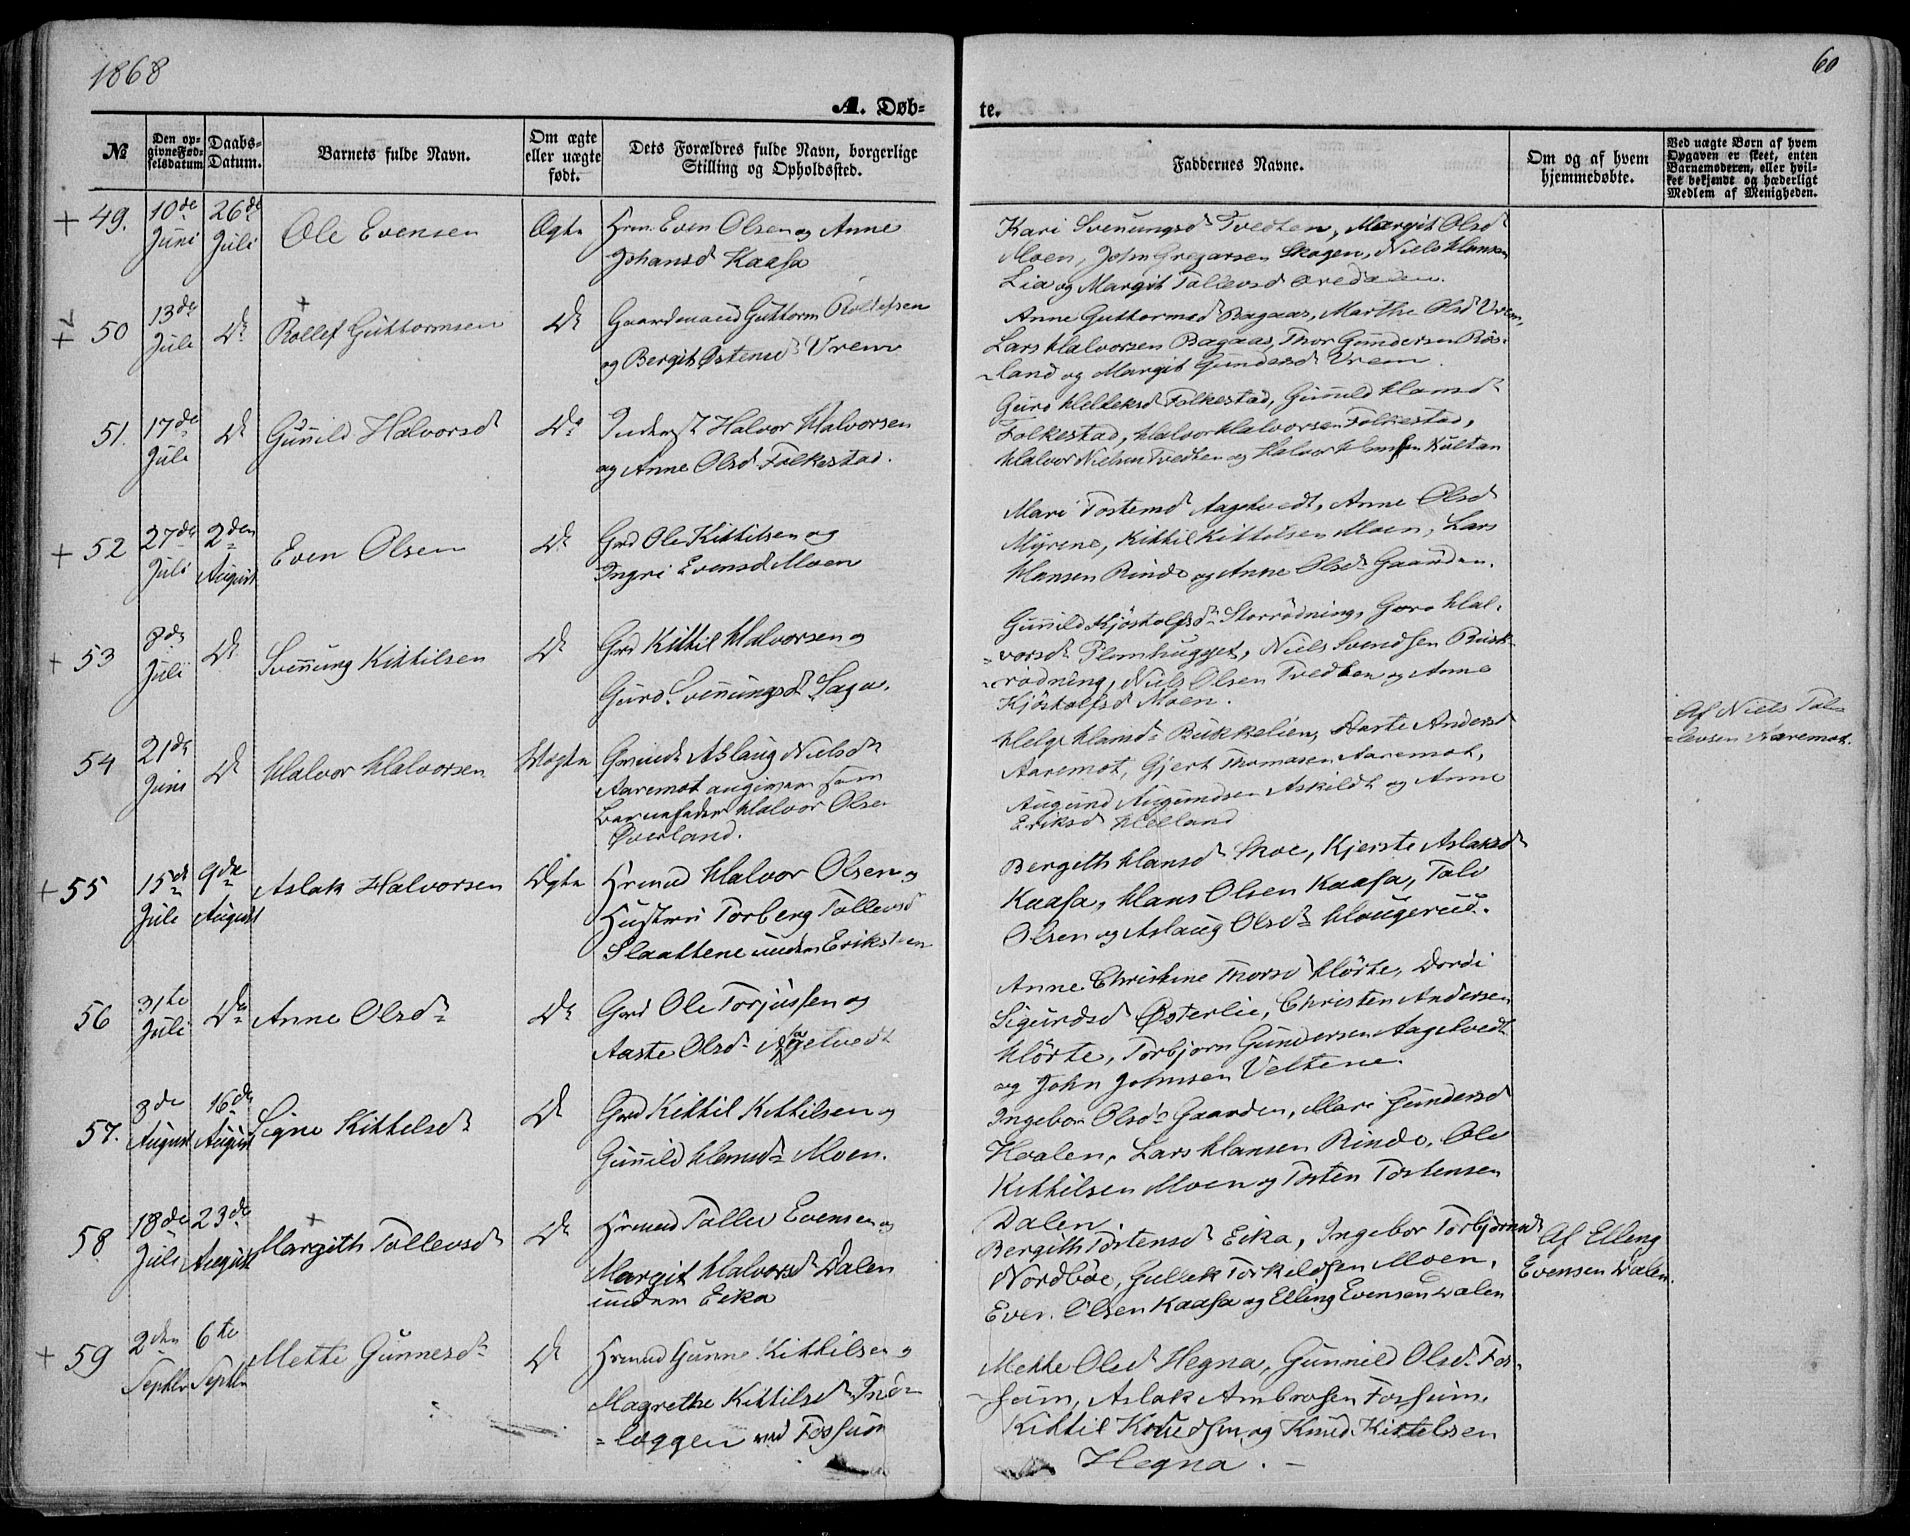 1868
60
A. Døb-
te.
№
Den op-
givne Fød-
selsdatum
Daabs-
Datum.
Barnets fulde Navn.
Om ægte
eller uægte
født.
Dets Forældres fulde Navn, borgerlige
Stilling og Opholdssted.
Faddernes Navne.
Om og af hvem
hjemmedøbte.
Ved uægte Børn af hvem
Opgaven er skeet, enten
Barnemoderen, eller hvil-
ket bekjendt og hæderligt
Medlem af Menigheden.
+ 49. 10de Juni 26de Juli
Ole Evensen
Ægte
Hrm. Even Olsen og Anne
Johansd Kaasa
Kari Svenungsd Tvedten, Margit Olsd
Moen, John Gregarsen Skogen, Niels Hansen
Lia og Margit Tollevsd
+ 50 13de Juli Do
Rollef Guttormsen
Do
Gaardmand Guttorm Rollefsen
og Bergit Østensd Vrem
Anne Guttormsd Bagaas, Marthe Olsd Vrem,
Lars Halvorsen Bagaas, Thor Gundersen Røs-
land og Margit Gundersd Vrem.
51. 17de Juli Do
Gunild Halvorsd
Do
Inderst Halvor Halvorsen
og Anne Olsd Folkestad.
Guro Helleksd Folkestad, Gunild Hansd
Folkestad, Halvor Halvorsen Folkestad,
Halvor Nielsen Tvedten og Halvor Hansen Kultan
+ 52 27de Juli 2den August
Even Olsen
Do
Grd Ole Kittilsen og
Ingri Evensd Moen
Mari Tostensd Aagetvedt, Anne Olsd
Myrene, Kittil Kittilsen Moen, Lars
Hansen Rinde og Anne Olsd Gaarden.
+ 53 8de Juli Do
Svennung Kittilsen
Do
Grd Kittil Halvorsen og
Guro Svennungsd Saga.
Gunild Kjøstolfsd Storrødning, Guro Hal-
vorsd Plomhugget, Niels Svendsen Busk-
rødning, Niels Olsen Tvedten og Anne
Kjøstolfsd Moen.
54 21de Juni Do
Halvor Halvorsen
Uægte
Aslaug Nielsd
Aaremot angiven som
Barnefader Halvor Olsen
Øverland.
Helge Hansd Bukkelien, Aaste Andersd
Aaremot, Gjert Thomasen Aaremot,
Augund Augundsen Askildt og Anne
Eriksd Helland
Af Niels Tol-
levsen Aaremot.
+ 55 15de Juli 9de August
Aslak Halvorsen
Ægte
Hrmd Halvor Olsen og
Hustru Torberg Tollevsd
Slaattene under Eriksteen
Bergith Hansd Moe, Kjerste Aslaksd
Kaasa, Hans Olsen Kaasa, Tolv
Olsen og Aslaug Olsd Haugerud.
56 31te Juli Do
Anne Olsd
Do
Grd Ole Torjussen og
Aaste Olsd Aagetvedt
Anne Christine Thorsd Hørte, Dordi
Sigurdsd Østerlie, Christen Andersen
Hørte, Torbjørn Gundersen Aagetvedt
og John Johnsen Veltene.
57. 3de August 16de August
Signe Kittelsd
Do
Grd Kittil Kittilsen og
Gunild Hansd Moen.
Ingebor Olsd Gaarden, Mari Gundersd
Hvalen, Lars Hansen Rinde, Ole
Kittilsen Moen og Tosten Tostensen
Dalen.
58 18de Juli 23de August
Margith Tollevsd
Do
Hrmd Tollev Evensen og
Margit Halvorsd Dalen
under Eika
Bergith Tostensd Eika, Ingebor Torbjørnsd
Nordbøe, Gullek Torkildsen Moen,
Even Olsen Kaasa og Elling Evensen Dalen
Af Elling
Evensen Dalen.
+ 59 2den Septbr 6te Septbr
Mette Gunnesd
Do
Hrmd Gunne Kittilsen og
Magrethe Kittilsd Ind-
læggen ved Fossum
Mette Olsd Hegna, Gunnild Olsd Fos-
sum, Aslak Ambrosen Fossum,
Kittil Knudsen og Knud Kittelsen
Hegna.